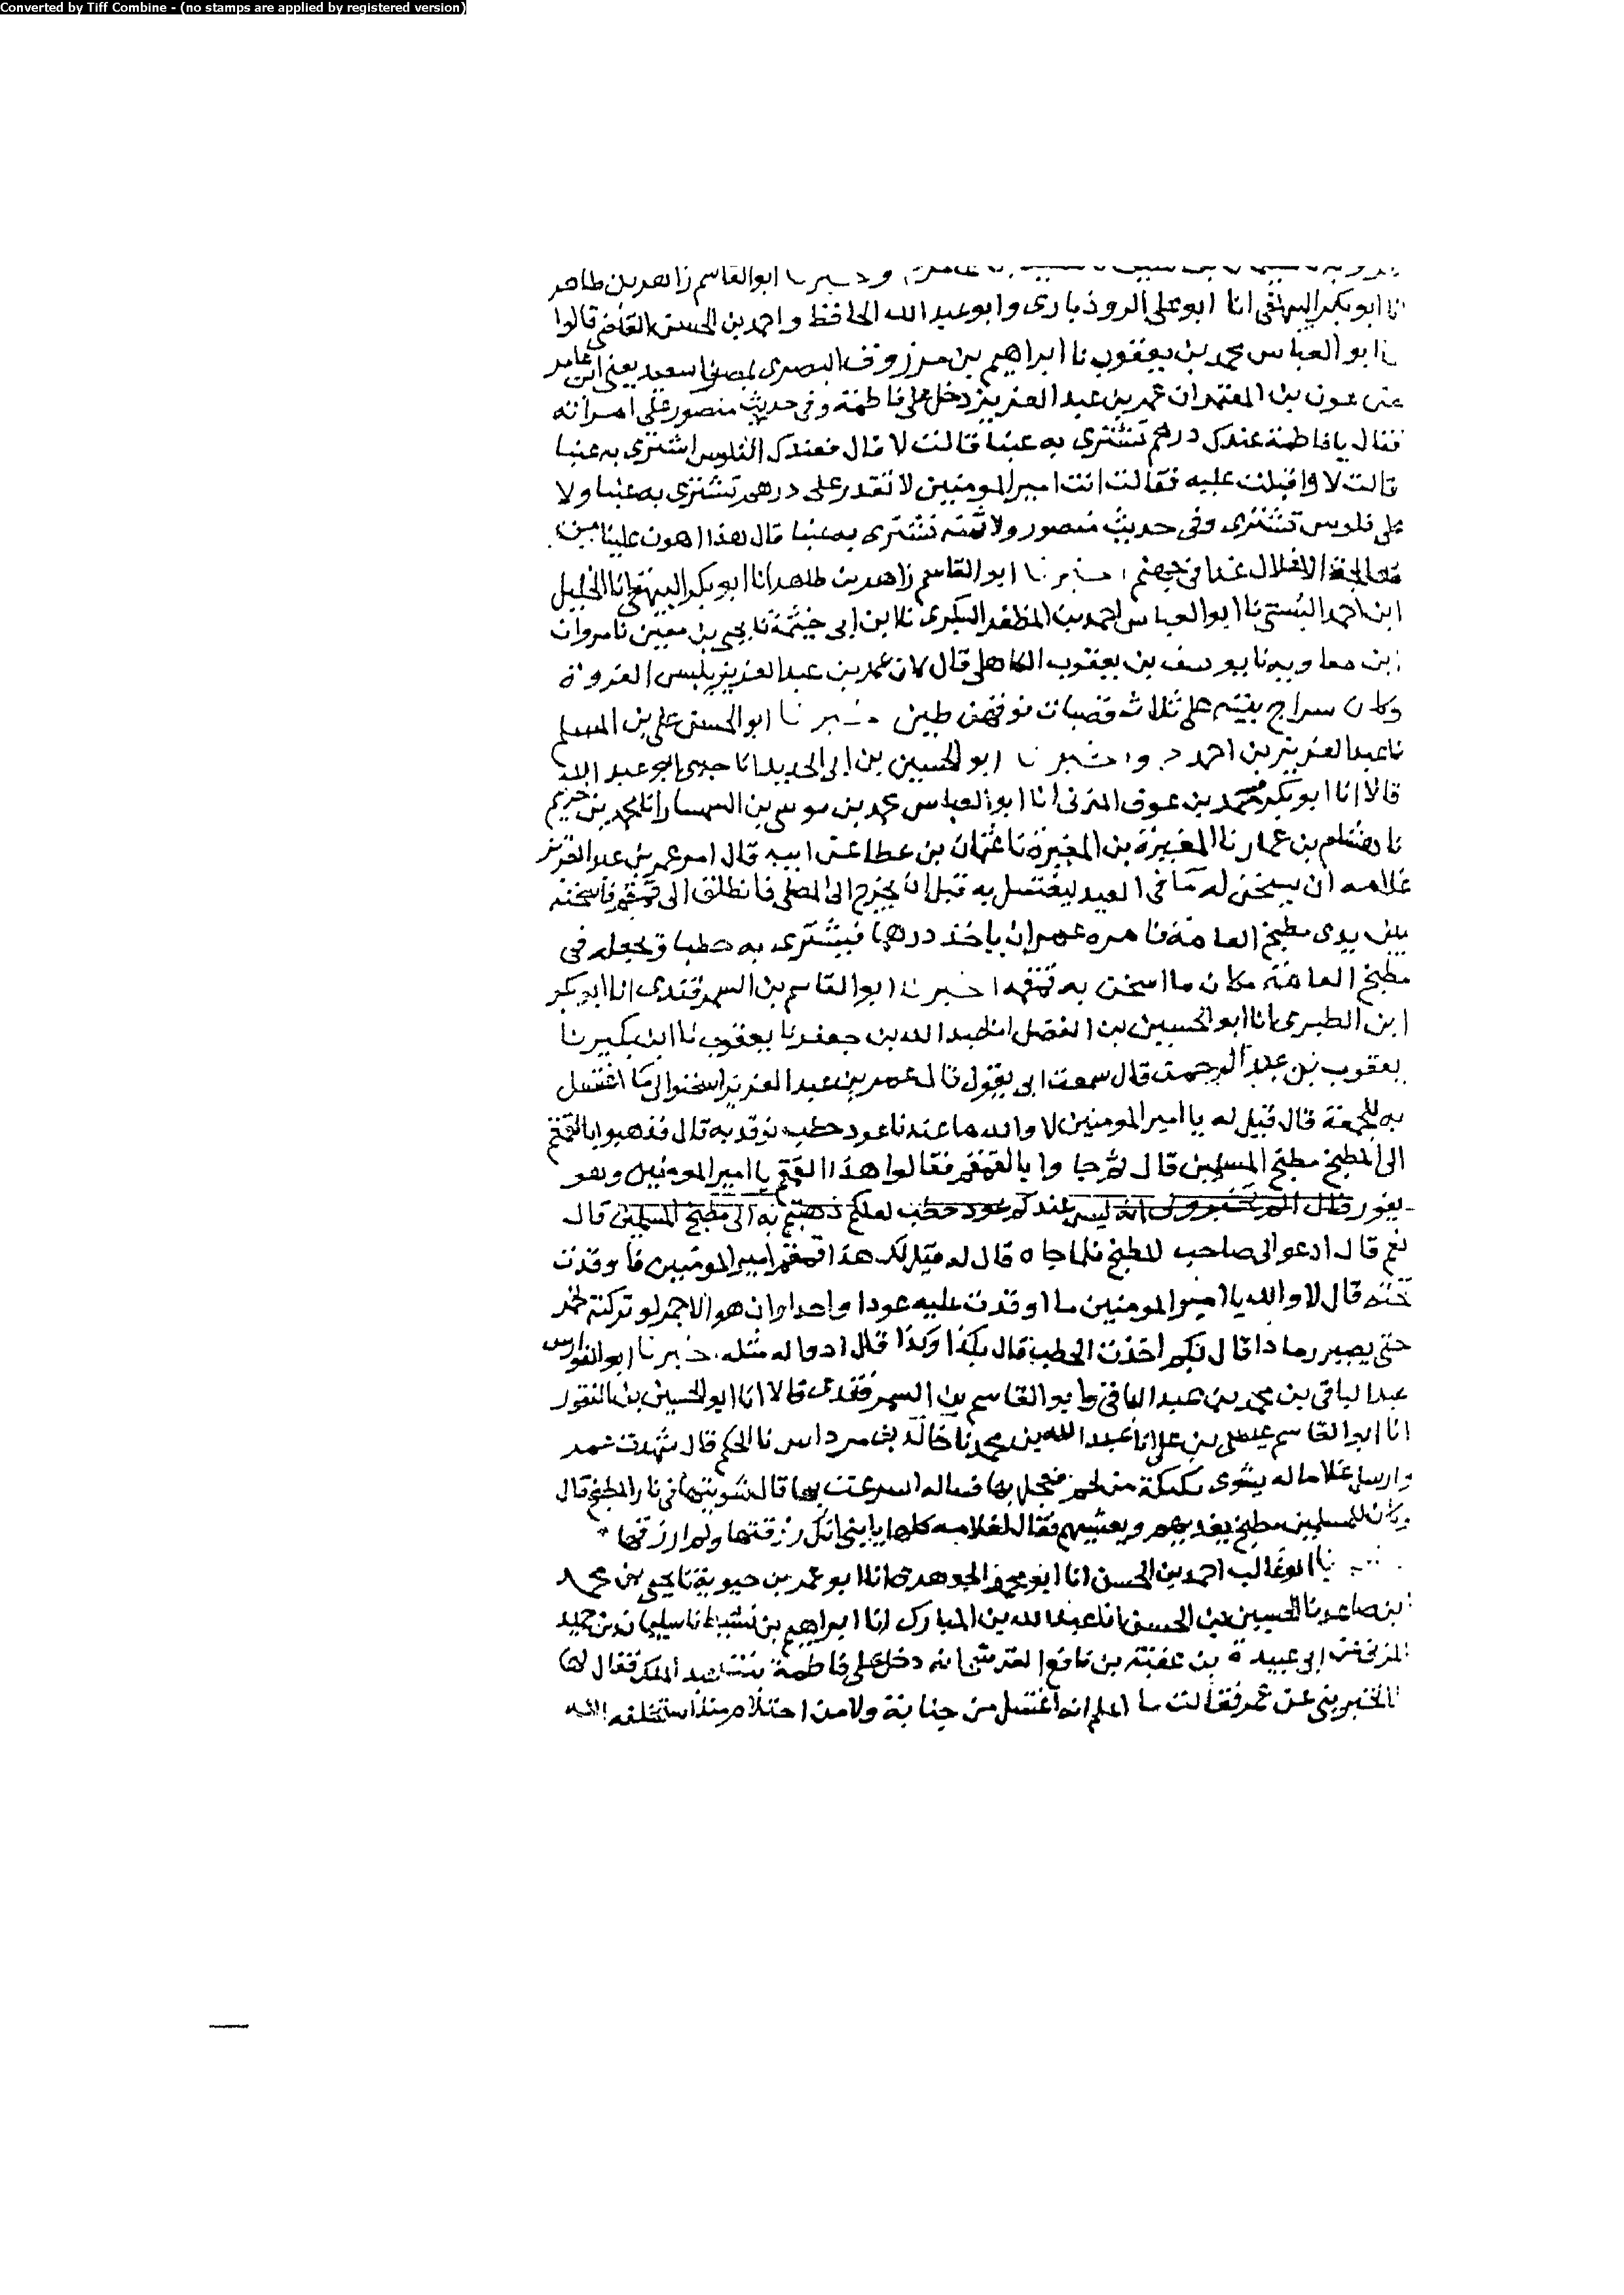 Converted by Tiff Combine - (no stamps are applied by registered version)
ابوالقاسم زاهر بن طاهر
انا ابو بكر البيهقى انا ابو على الروذبارى وابو عبد الله الحافظ واحمد بن الحسن القاضى قالوا
نا ابو العباس محمد بن يعقوب نا ابراهيم بن مرزوق البصرى بمصر نا سعيد يعنى ابن عامر
عن عون بن المعتمر ان عمر بن عبد العزيز دخل على فاطمة وفى حديث منصور على امراته
فقال يا فاطمة عندك درهم تشترى به عنبا قالت لا قال فعندك الفلوس اشترى به عنبا
قالت لا واقبلت عليه فقالت انت امير المومنين لا تقدر على درهم تشترى به عنبا ولا
على فلوس تشترى وفى حديث منصور ولا تشترى به عنبا قال هذا اهون علينا من
معالجة الاغلال غدا فى جهنم ابو القاسم زاهر بن طاهر انا ابو بكر البيهقى انا الخليل
ابن احمد البستى نا ابو العباس احمد بن المظفر البكرى نا ابن ابى خيثمة نا يحيى بن معين نا مروان
ابن معاويه نا يوسف بن يعقوب الكاهلى قال كان عمر بن عبد العزيز يلبس الفروة
وكان سراج بيته على ثلاث قصبات فوقهن طين ابو الحسن على بن المسلم
نا عبد العزيز بن احمد ح واخبرنا ابو الحسين بن ابى الحديد انا جدى ابو عبد الله
قالا انا ابو بكر محمد بن عوف المزنى انا ابو العباس محمد بن موسى بن السمسار انا محمد بن خريم
نا هشام بن عمار نا المغيرة بن المغيرة نا عثمان بن عطا عن ابيه قال امر عمر بن عبد العزيز
غلامه ان يسخن له ما فى العيد ليغتسل به قبل ان يخرج الى المصلى فانطلق الى قمقم فاسخنه
بين يدى مطبخ العامة فامره عمر ان ياخذ درهما فيشترى به حطبا ويجعله فى
مطبخ العامة مكان ما اسخن به قمقمه اخبرنا ابو القاسم بن السمرقندى انا ابو بكر
ابن الطبرى انا ابو الحسين بن الفضل انا عبد الله بن جعفر نا يعقوب نا ابن بكير نا
يعقوب بن عبد الرحمن قال سمعت ابى يقول قال عمر بن عبد العزيز اسخنوا لى ما اغتسل
به للجمعة قال فقيل له يا امير المومنين لا والله ما عندنا عود حطب نوقد به قال فذهبوا بالقمقم
الى المطبخ مطبخ المسلمين قال ثم جاوا بالقمقم فقالوا هذا القمقم يا امير المومنين وهو
يفور فقال الم تخبرونى انه ليس عندكم عود حطب لعلكم ذهبتم به الى مطبخ المسلمين قال
نعم قال ادعو الى صاحب المطبخ فلما جاه قال له قيل لك هذا قمقم امير المومنين فاوقدت
تحته قال لا والله يا امير المومنين ما اوقدت عليه عودا واحدا وان هو الا جمر لو تركته لخمد
حتى يصير رمادا قال بكم اخذت الحطب قال بكذا وكذا قال ادوا له مثله. اخبرنا ابو الفوارس
عبد الباقى بن محمد بن عبد الباقى وابو القاسم بن السمرقندى قالا انا ابو الحسين بن النقور
انا ابو القاسم عيسى بن على انا عبد الله بن محمد نا خالد بن مرداس نا الحكم قال شهدت عمر
وارسل غلاما له يشوى بكبكة من لحم فعجل بها فقال له اسرعت بها قال شويتها فى نار المطبخ قال
وكان للمسلمين مطبخ يغديهم ويعشيهم فقال لغلامه كلها يا بنى انك رزقتها ولم ارزقها
ابو غالب احمد بن الحسن انا ابو محمد الجوهرى انا ابو عمر بن حيوية نا يحيى بن محمد
بن صاعد نا الحسين بن الحسن انا عبد الله بن المبارك انا ابراهيم بن نشيط نا سليمان بن حميد
المزنى عن ابى عبيدة بن عقبة بن نافع القرشى انه دخل على فاطمة بنت عبد الملك فقال لها
الا تخبرينى عن عمر فقالت ما اعلم انه اغتسل من جنابة ولا من احتلام منذ استخلفه الله